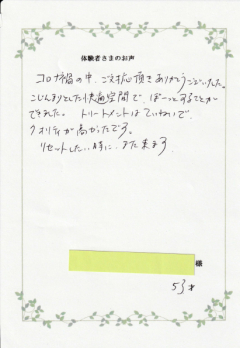 体験者さまのお声
コロナ禍の中、ご対応頂きありがとうございました。
こじんまりとした快適空間で、ぼーっとすることが
できました。 トリートメントはていねいで、
クオリティが高かったです。
リセットしたい時に、また来ます。
様
53才